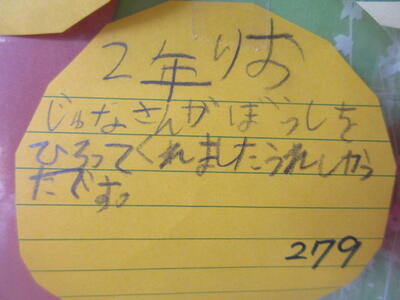 2年りお
じゅなさんがぼうしを
ひろってくれましたうれしかっ
たです。
279